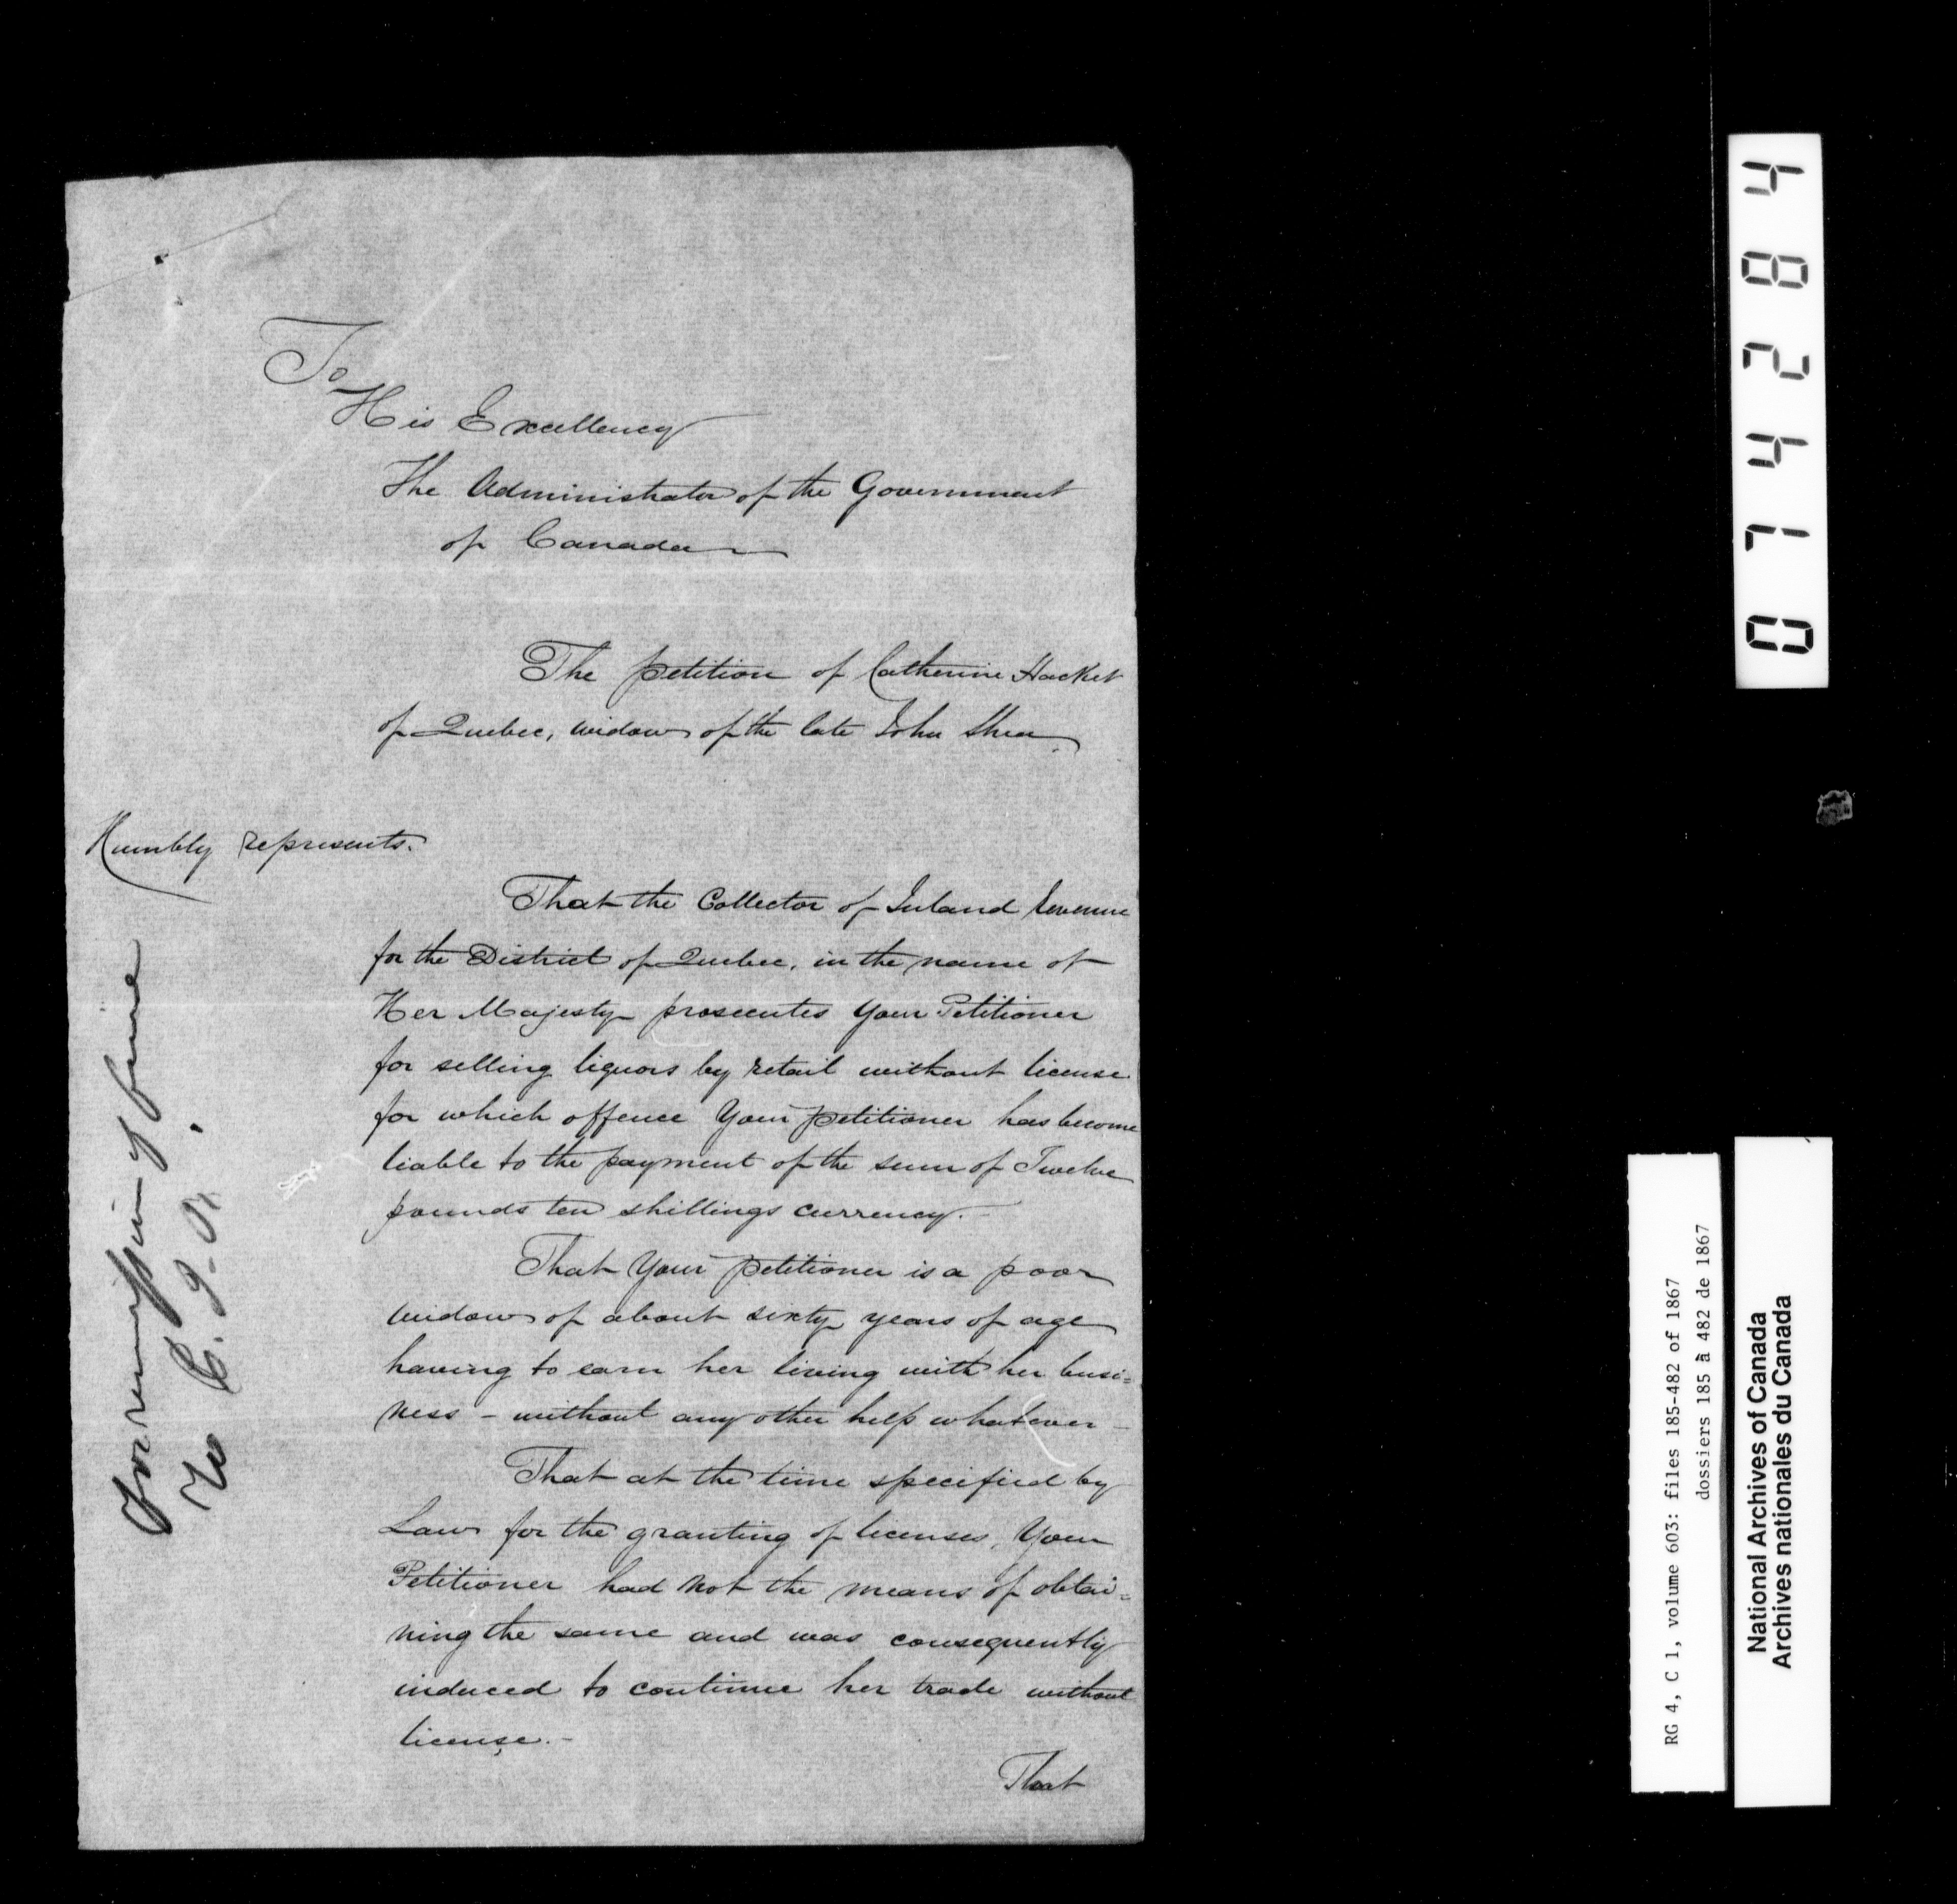 To
His Excellency
The Administrator of the Government
of Canada
The petition of Catherine Hacket
of Quebec, widow of the late John Shea.
Humbly represents.
That the Collector of Inland revenue
for the District of Quebec, in the name of
Her Majesty prosecutes Your Petitioner
for selling liquors by retail without license
for which offence Your petitioner has become
liable to the payment of the sum of Twelve
pounds ten shillings currency. -
That Your petitioner is a poor
widow of about sixty years of age
having to earn her living with her busi=
ness - without any other help whatever -
That at the time specified by
Law for the granting of licenses, Your
Petitioner had not the means of obtai=
ning the same and was consequently
induced to continue her trade without
license. -
That
For remission of fine
074284
RG 4, C 1, volume 603: files 185-482 of 1867
dossiers 185 à 482 de 1867
National Archives of Canada
Archives nationales du Canada